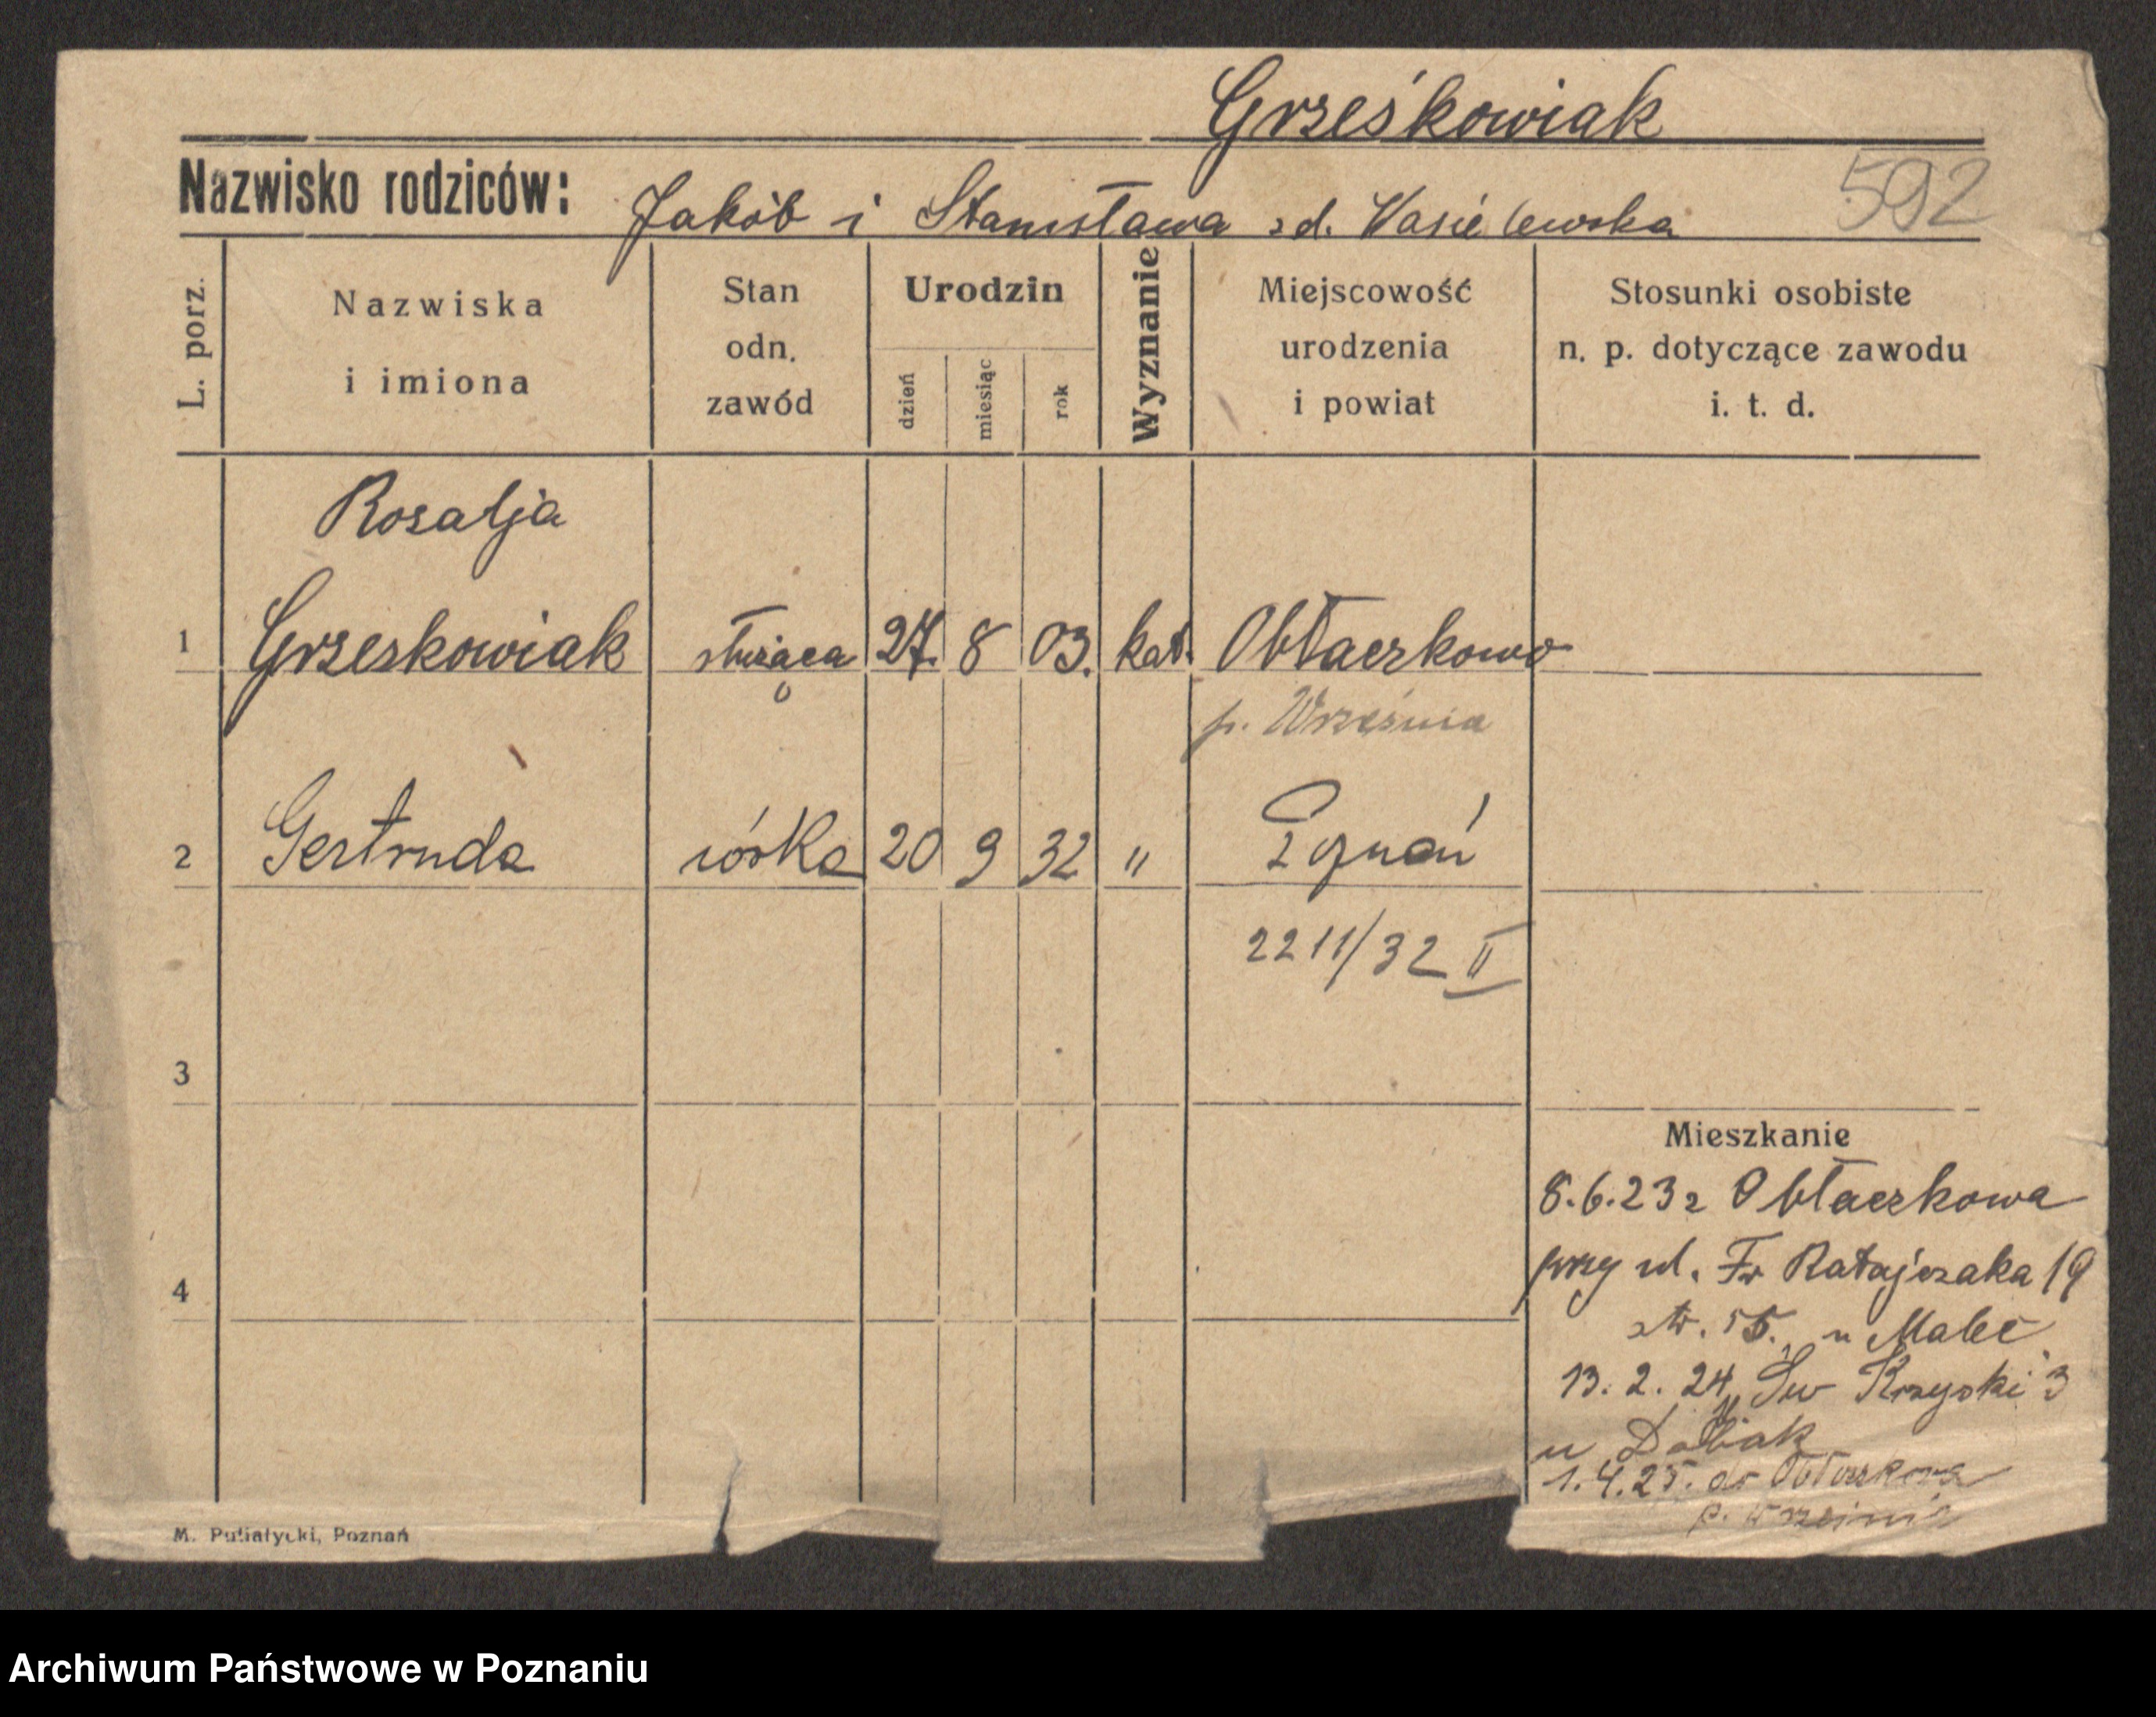 Grześkowiak
592
Nazwisko rodziców: Jakób i Stanisława zd. Wasielewska
L. porz.
Nazwiska
i imiona
Stan
odn.
zawód
Urodzin
dzień
miesiąc
rok
Wyznanie
Miejscowość
urodzenia
i powiat
Stosunki osobiste
n. p. dotyczące zawodu
i. t. d.
Rozalja
1 Grzeskowiak służąca 27. 8 03. kat. Obłaczkowo
p. Września
2 Gertruda córka 20 9 32 " Poznań
2211/32 II
3
Mieszkanie
8.6.23 z Obłaczkowa
4
przy ul. Fr Ratajczaka 19
str. 15. u Malec
13. 2. 24 Św Krzyski 3
u
1.4.25. do Obłaczkowa
p. Września
M. Putiatycki, Poznań
Archiwum Państwowe w Poznaniu